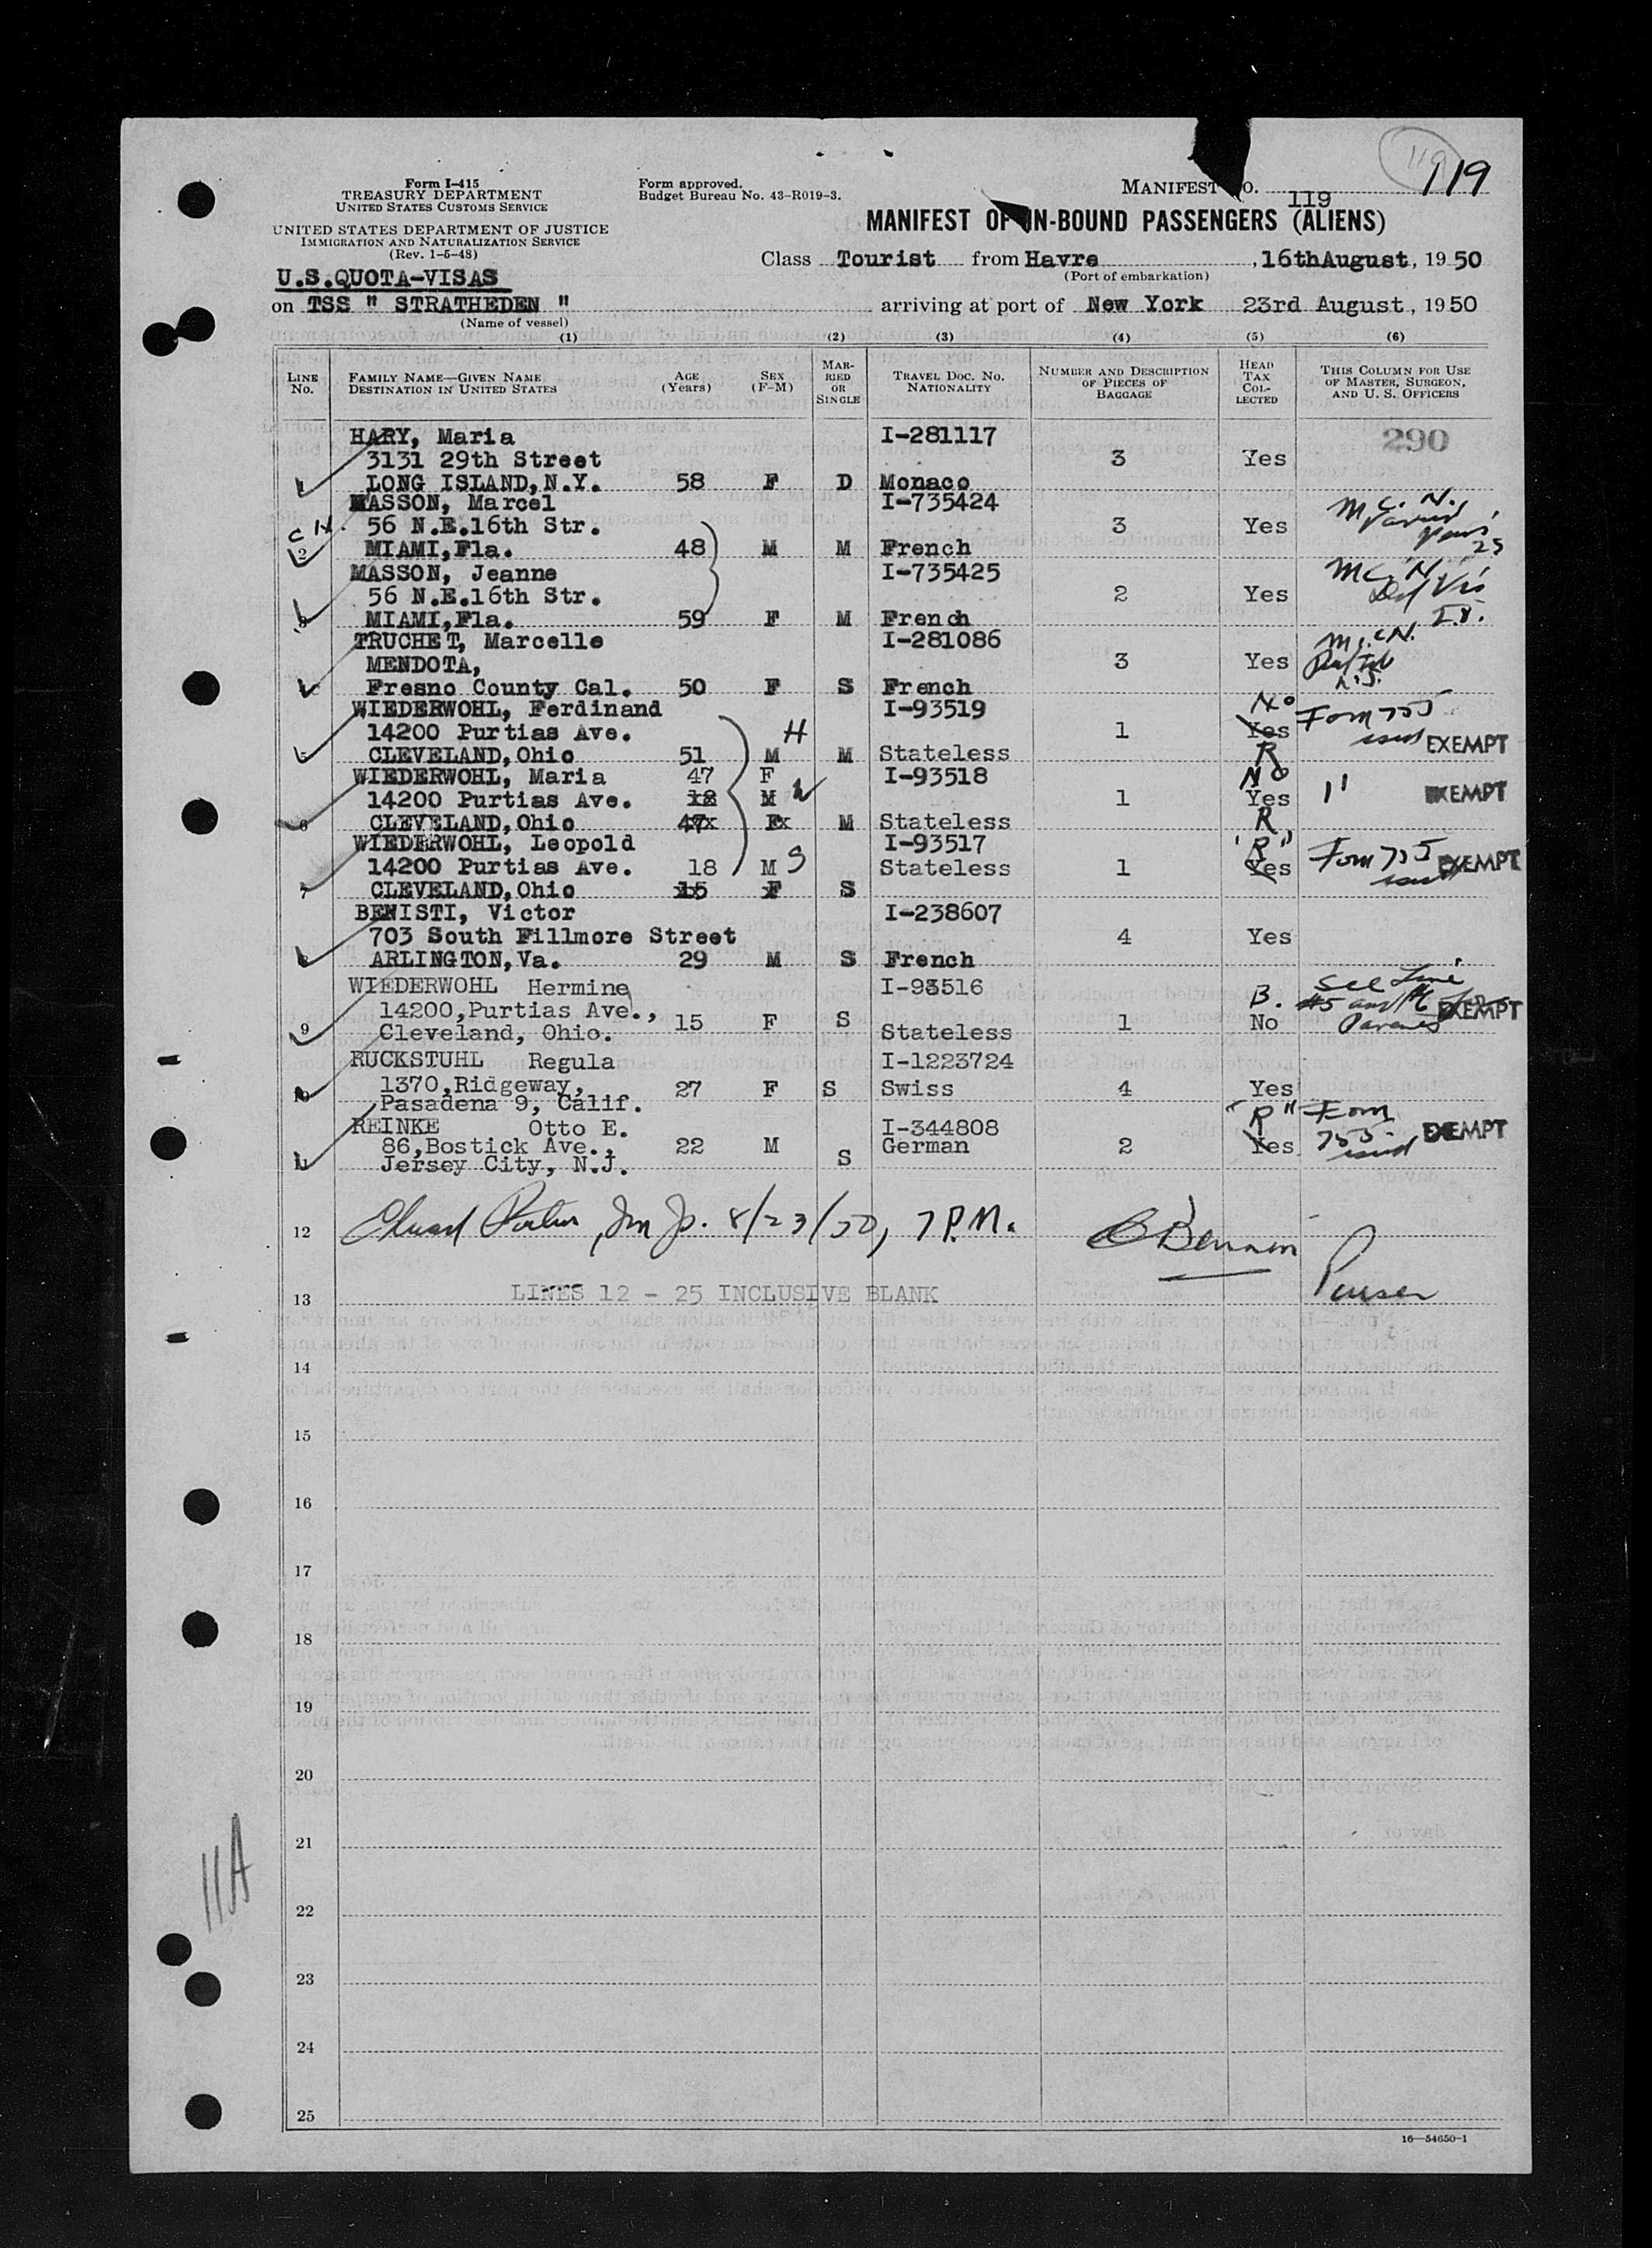 119
119
Form I-415
TREASURY DEPARTMENT
UNITED STATES CUSTOMS SERVICE
UNITED STATES DEPARTMENT OF JUSTICE
IMMIGRATION AND NATURALIZATION SERVICE
(Rev. 1-5-48)
Form approved.
Budget Bureau No. 43-R019-3.
MANIFEST NO. 119
MANIFEST OF IN-BOUND PASSENGERS (ALIENS)
Class Tourist from Havre, 16thAugust, 1950
(Port of embarkation)
U.S.QUOTA-VISAS
on TSS " STRATHEDEN " arriving at port of New York 23rd August, 1950
(Name of vessel)
(1) (2) (3) (4) (5) (6)
LINE No. FAMILY NAME—GIVEN NAME DESTINATION IN UNITED STATES AGE (Years) SEX (F-M) MARRIED OR SINGLE TRAVEL DOC. NO. NATIONALITY NUMBER AND DESCRIPTION OF PIECES OF BAGGAGE HEAD TAX COLLECTED THIS COLUMN FOR USE OF MASTER, SURGEON, AND U. S. OFFICERS
HARY, Maria I-281117 290
3131 29th Street 3 Yes
1 LONG ISLAND, N.Y. 58 F D Monaco
MASSON, Marcel I-735424 M.C.N.
C H. 56 N.E.16th Str. 3 Yes
2 MIAMI,Fla. 48 M M French 25
MASSON, Jeanne I-735425 M.C.N.
56 N.E.16th Str. 2 Yes
3 MIAMI,Fla. 59 F M French
TRUCHET, Marcelle I-281086 M.C.N.
MENDOTA, 3 Yes
Fresno County Cal. 50 F S French
WIEDERWOHL, Ferdinand I-93519 No Form 755
14200 Purtias Ave. H 1 Yes issued EXEMPT
5 CLEVELAND,Ohio 51 M M Stateless R
WIEDERWOHL, Maria 47 F I-93518 No
14200 Purtias Ave. 18 M W 1 Yes " EXEMPT
6 CLEVELAND,Ohio 47x Fx M Stateless R
WIEDERWOHL, Leopold I-93517 "R" Form 755
14200 Purtias Ave. 18 M S Stateless 1 Yes issued EXEMPT
7 CLEVELAND,Ohio 15 F S
BENISTI, Victor I-238607
703 South Fillmore Street 4 Yes
8 ARLINGTON,Va. 29 M S French
WIEDERWOHL Hermine I-93516 See Line
14200,Purtias Ave., B. #5 and #6 for EXEMPT
9 Cleveland, Ohio. 15 F S Stateless 1 No Parents
RUCKSTUHL Regula I-1223724
1370,Ridgeway, 27 F S Swiss 4 Yes
10 Pasadena 9, Calif.
REINKE Otto E. I-344808 "R" Form
86,Bostick Ave., 22 M German 2 Yes 755 issued EXEMPT
11 Jersey City, N.J. S
12 8/23/50, 7 P.M.
Purser
13 LINES 12 - 25 INCLUSIVE BLANK
14
15
16
17
18
19
20
21
11A
22
23
24
25
16—54650-1